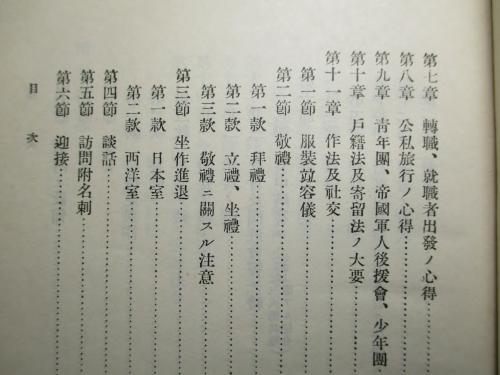 第七章 轉職、就職者出發ノ心得……
第八章 公私旅行ノ心得……
第九章 靑年團、帝國軍人後援會、少年團
第十章 戶籍法及寄留法ノ大要……
第十一章 作法及社交……
第一節 服裝竝容儀……
第二節 敬禮……
第一款 拜禮……
第二款 立禮、坐禮……
第三款 敬禮ニ關スル注意……
第三節 坐作進退……
第一款 日本室……
第二款 西洋室……
第四節 談話……
第五節 訪問附名刺……
第六節 迎接……
目次